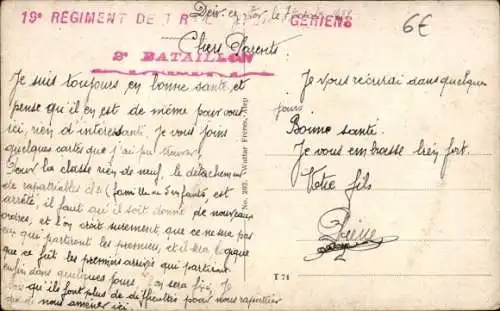 19e REGIMENT DE TIR ALGERIENS
2e BATAILLON
6€
Deir ez Zor, le
Chers Parents.
Je suis toujours en bonne santé et
pense qu'il en est de même pour vous
ici, rien d'intéressant. Je vous joins
quelques cartes que j'ai pu trouver.
Pour la classe rien de neuf, le détachement
de rapatriables dts (famille ou 5 enfants, est
arrêté, il faut qu'il soit donné de nouveaux
ordres, et l'on dirait surement, que ce ne sse pas
eux qui partiront les premiers, et il sera logique
que ce fait les premiers arrivés qui partiront
enfin dans quelques jours, on sera fixé, Je
qu'ils font plus de difficultés pour nous rapatrier
que de nous amener ici.
No. 202. Wattar Frères, Alep
Je vous récrirai dans quelques
jours
Bonne santé.
Je vous embrasse bien fort.
Votre fils
Pierre
T 71